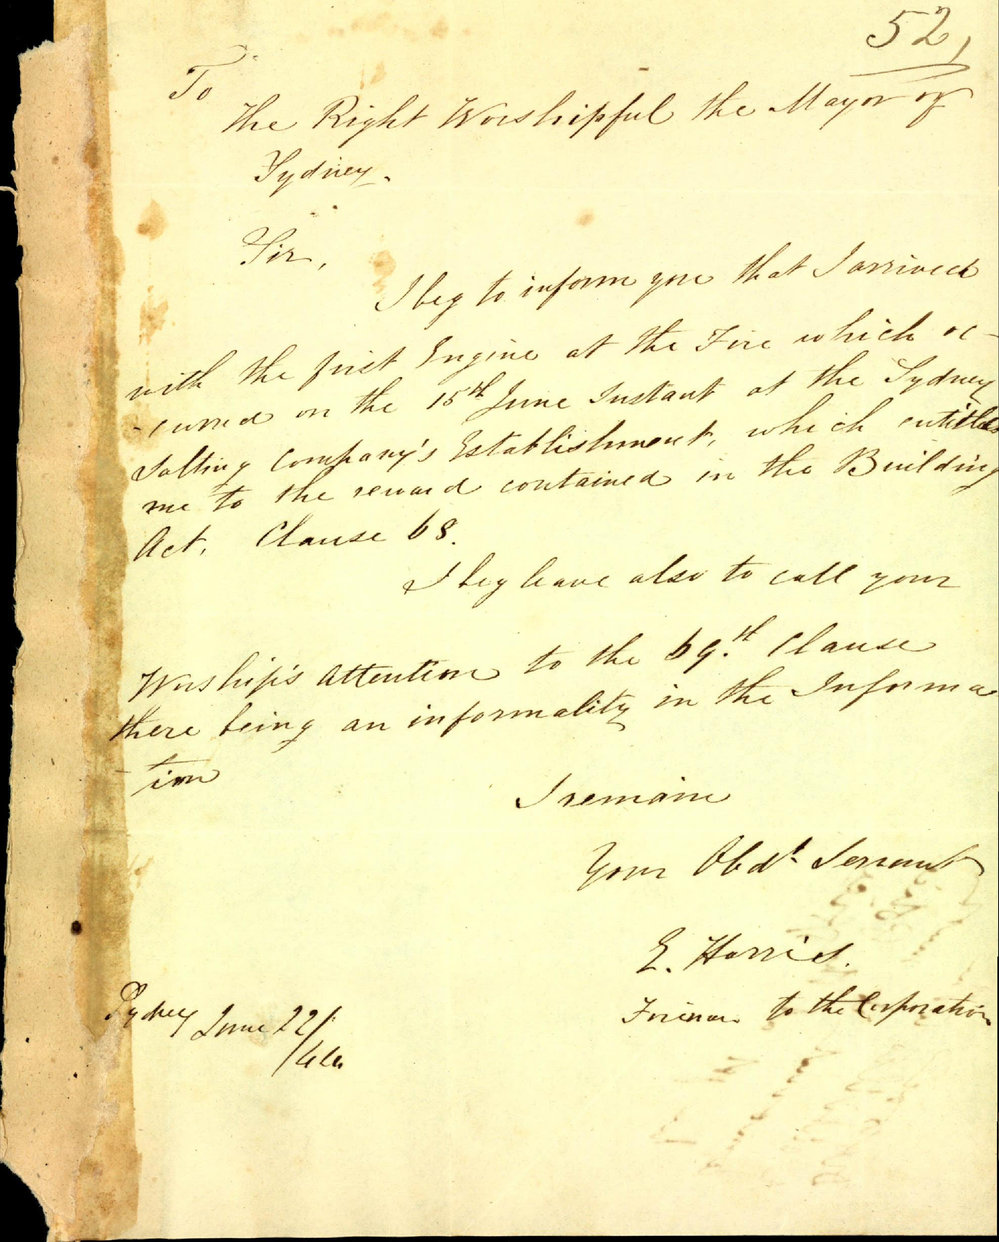 52
To
The Right Worshipful the Mayor of
Sydney.
Sir,
I beg to inform you that I arrived
with the first Engine at the Fire which oc-
-curred on the 15th June Instant at the Sydney
Salting Company's Establishment, which entitles
me to the reward contained in the Building
Act, Clause 68.
I beg leave also to call your
Worship's Attention to the 69th Clause
there being an informality in the Informa
-tion
I remain
Your Obdt Servant
E. Harris.
Foreman to the Corporation
Sydney June 22/